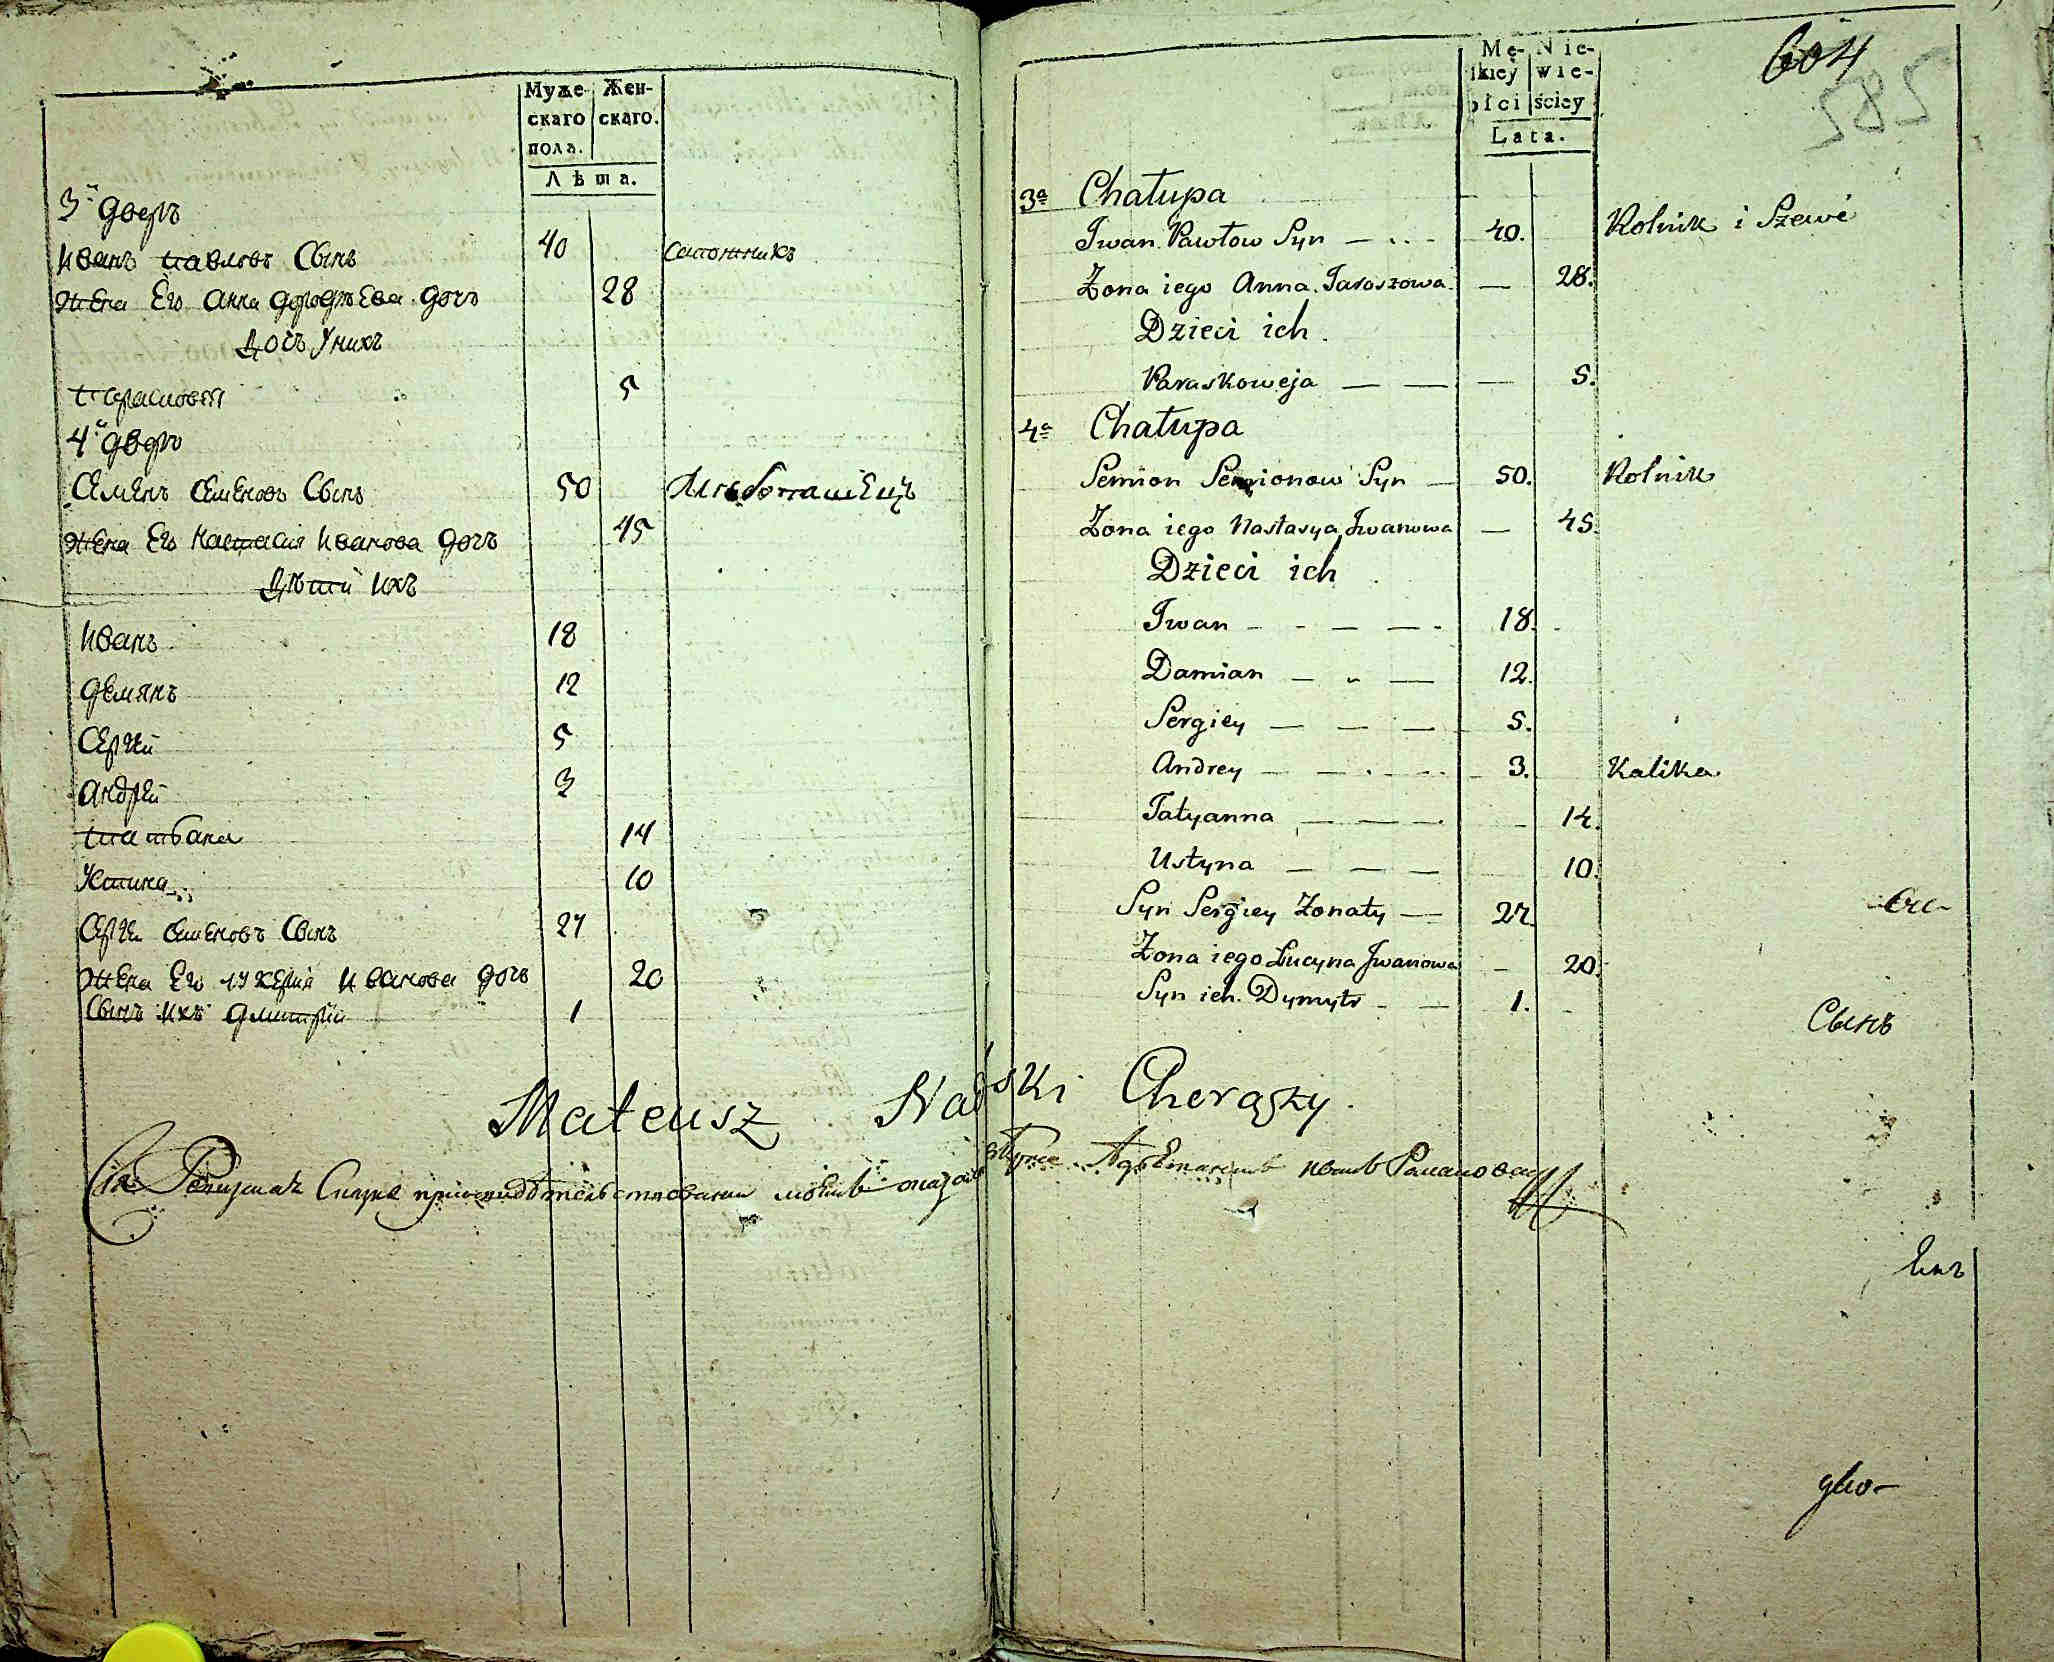 Муже- Жен-
скаго скаго.
пола.
Лѣта.
3й дворъ
Иванъ Павловъ Сынъ 40 Сапожникъ
Жена Его Анна Дорофѣева дочь 28
Дочь У нихъ
Парасковія 5
4й дворъ
Семенъ Семеновъ Сынъ 50 Хлебопашецъ
Жена Его Настасия Иванова дочь 45
Дѣти Ихъ
Иванъ 18
Демянъ 12
Сергей 5
Андрей 3
Татьана 14
Устина 10
Сергей Семеновъ Сынъ 27
Жена Его Лукерия Иванова дочь 20
Сынъ Ихъ Дмитрей 1
604
585
Mę- Nie-
skiey wie-
płci ściey
Lata.
3a Chałupa
Iwan Pawłow Syn 40. Rolnik i Szewc
Żona iego Anna Jaroszowa 28.
Dzieci ich.
Paraskoweja 5.
4a Chałupa
Semion Semionow Syn 50. Rolnik
Żona iego Nastasya Iwanowa 45.
Dzieci ich
Iwan 18.
Damian 12.
Sergiey 5.
Andrey 3. Kalika
Tatyanna 14.
Ustyna 10.
Syn Sergiey Żonaty 27.
Żona iego Łucyna Iwanowa 20.
Syn ich Dymytr 1.
Сынъ
Mateusz Chorąży.